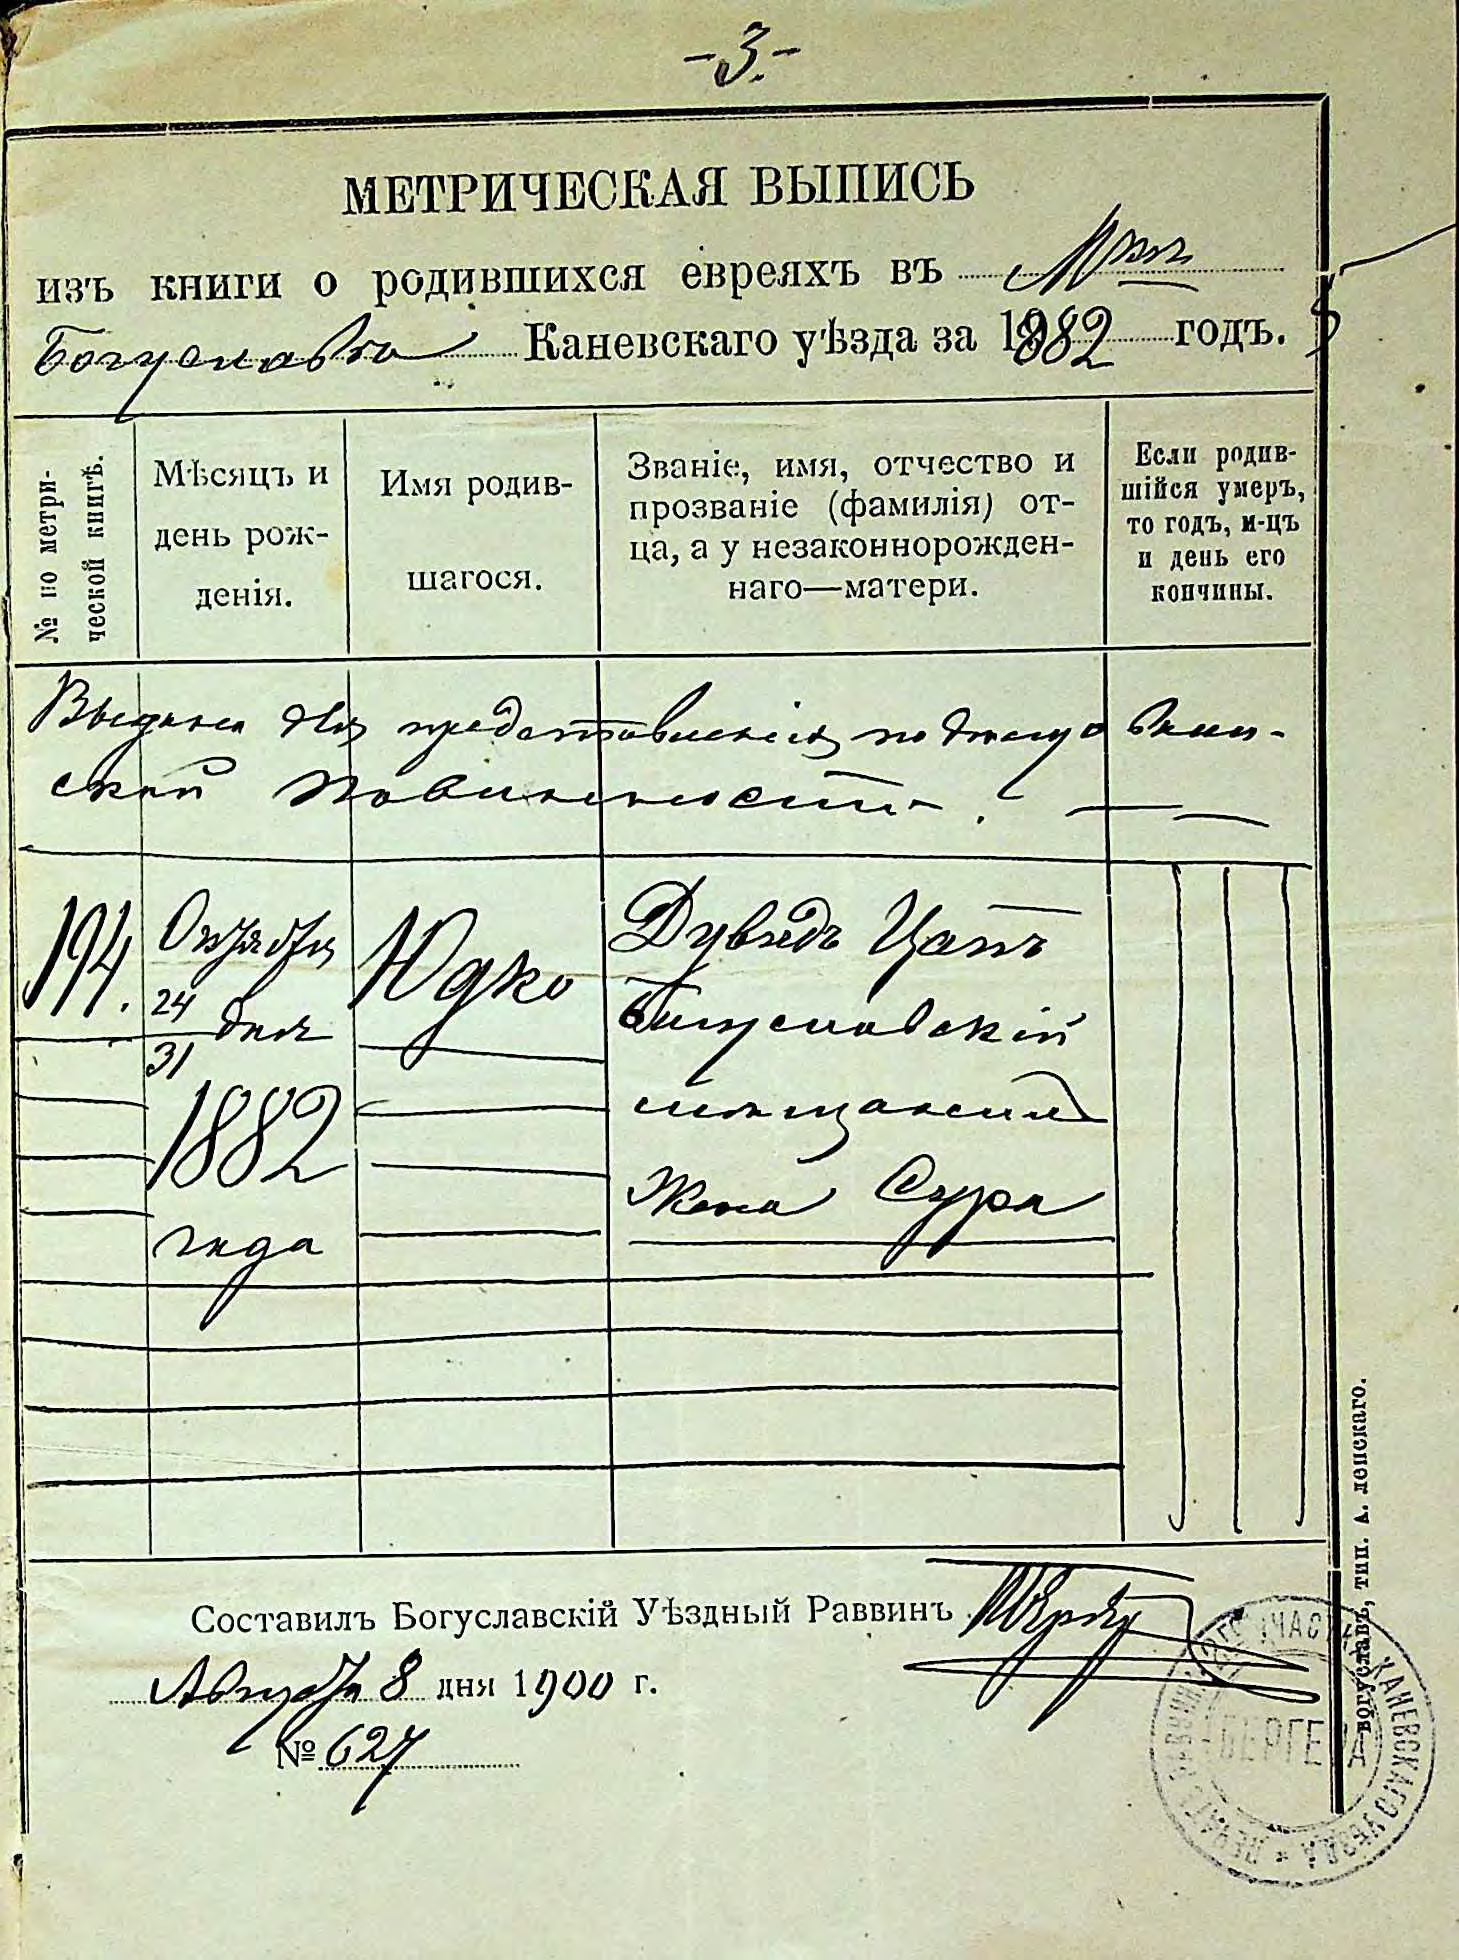 -3.-
МЕТРИЧЕСКАЯ ВЫПИСЬ
изъ книги о родившихся евреяхъ въ
Богуслава Каневскаго уѣзда за 1882 годъ.
№ по метри-
ческой книгѣ.
Мѣсяцъ и
день рож-
денія.
Имя родив-
шагося.
Званіе, имя, отчество и
прозваніе (фамилія) от-
ца, а у незаконнорожден-
наго—матери.
Если родив-
шійся умеръ,
то годъ, м-цъ
и день его
кончины.
Выдана для представленія по отбыв. воин-
ской повинности.
194.
Октября
24
31
дня
1882
года
Юдко
Дувидъ Цапъ
Богуславскій
мѣщанинъ
Жена Сура
Составилъ Богуславскій Уѣздный Раввинъ
Августа 8 дня 1900 г.
№ 627
Богуславъ, тип. А. Ленскаго.
КАНЕВСКАГО УѢЗДА * ПЕЧАТЬ РАВВИНА
БЕРГЕРА